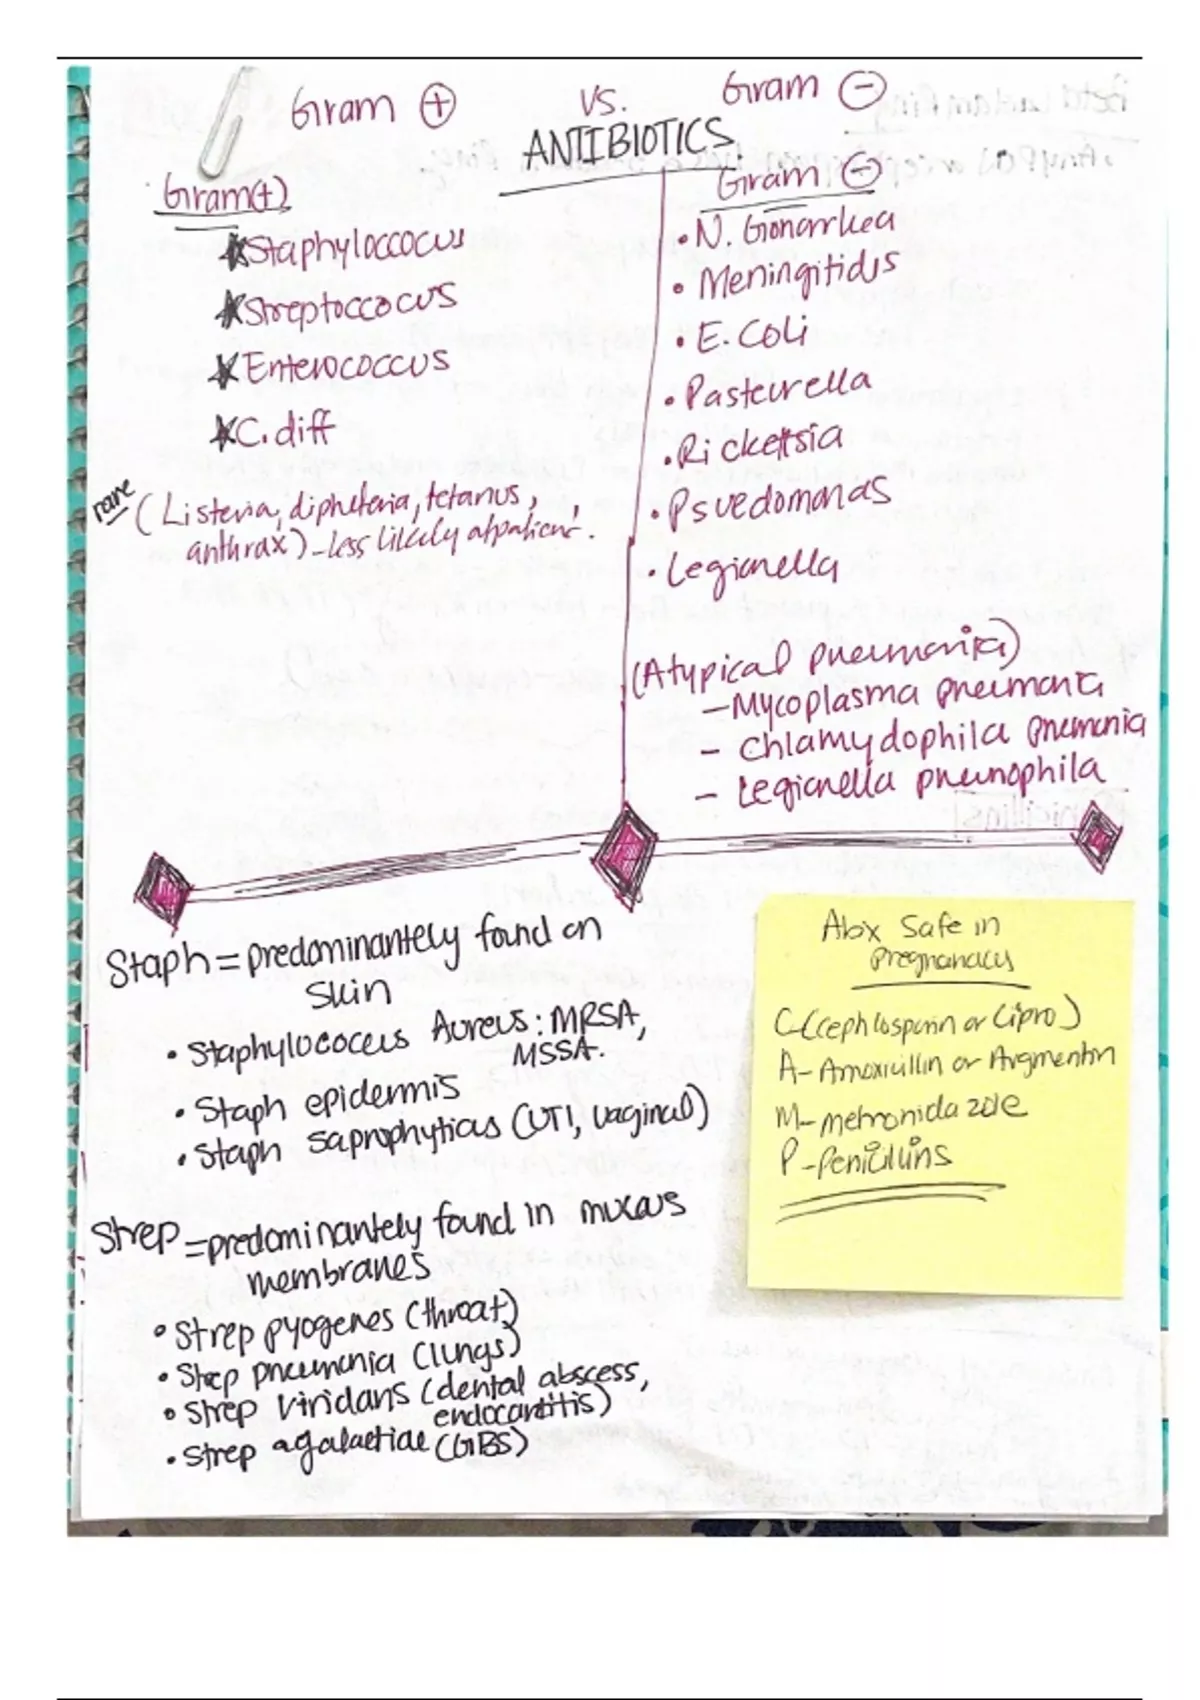 Gram ⊕ vs. Gram ⊖
ANTIBIOTICS
Gram(+)
Staphyloccocus
Streptoccocus
Enterococcus
C. diff
rare (Listeria, diphteria, tetanus,
anthrax) - less likely
Gram ⊖
• N. Gonorrhea
• Meningitidis
• E. Coli
• Pasteurella
• Ricketsia
• Psuedomonas
• Legionella
(Atypical pneumonia)
- Mycoplasma pneumonia
- Chlamydophila pnemonia
- Legionella pneunophila
Staph = predominantely found on
skin
• Staphylococcus Aureus: MRSA,
MSSA.
• Staph epidermis
• Staph saprophyticus (UTI, vaginal)
Strep = predominantely found in mucous
membranes
• Strep pyogenes (throat)
• Strep pneumonia (lungs)
• Strep viridans (dental abscess,
endocarditis)
• Strep agalactiae (GBS)
Abx Safe in
Pregnancy
C- (cephlosporin or Cipro)
A- Amoxicillin or Augmentin
M- metronidazole
P- Penicillins